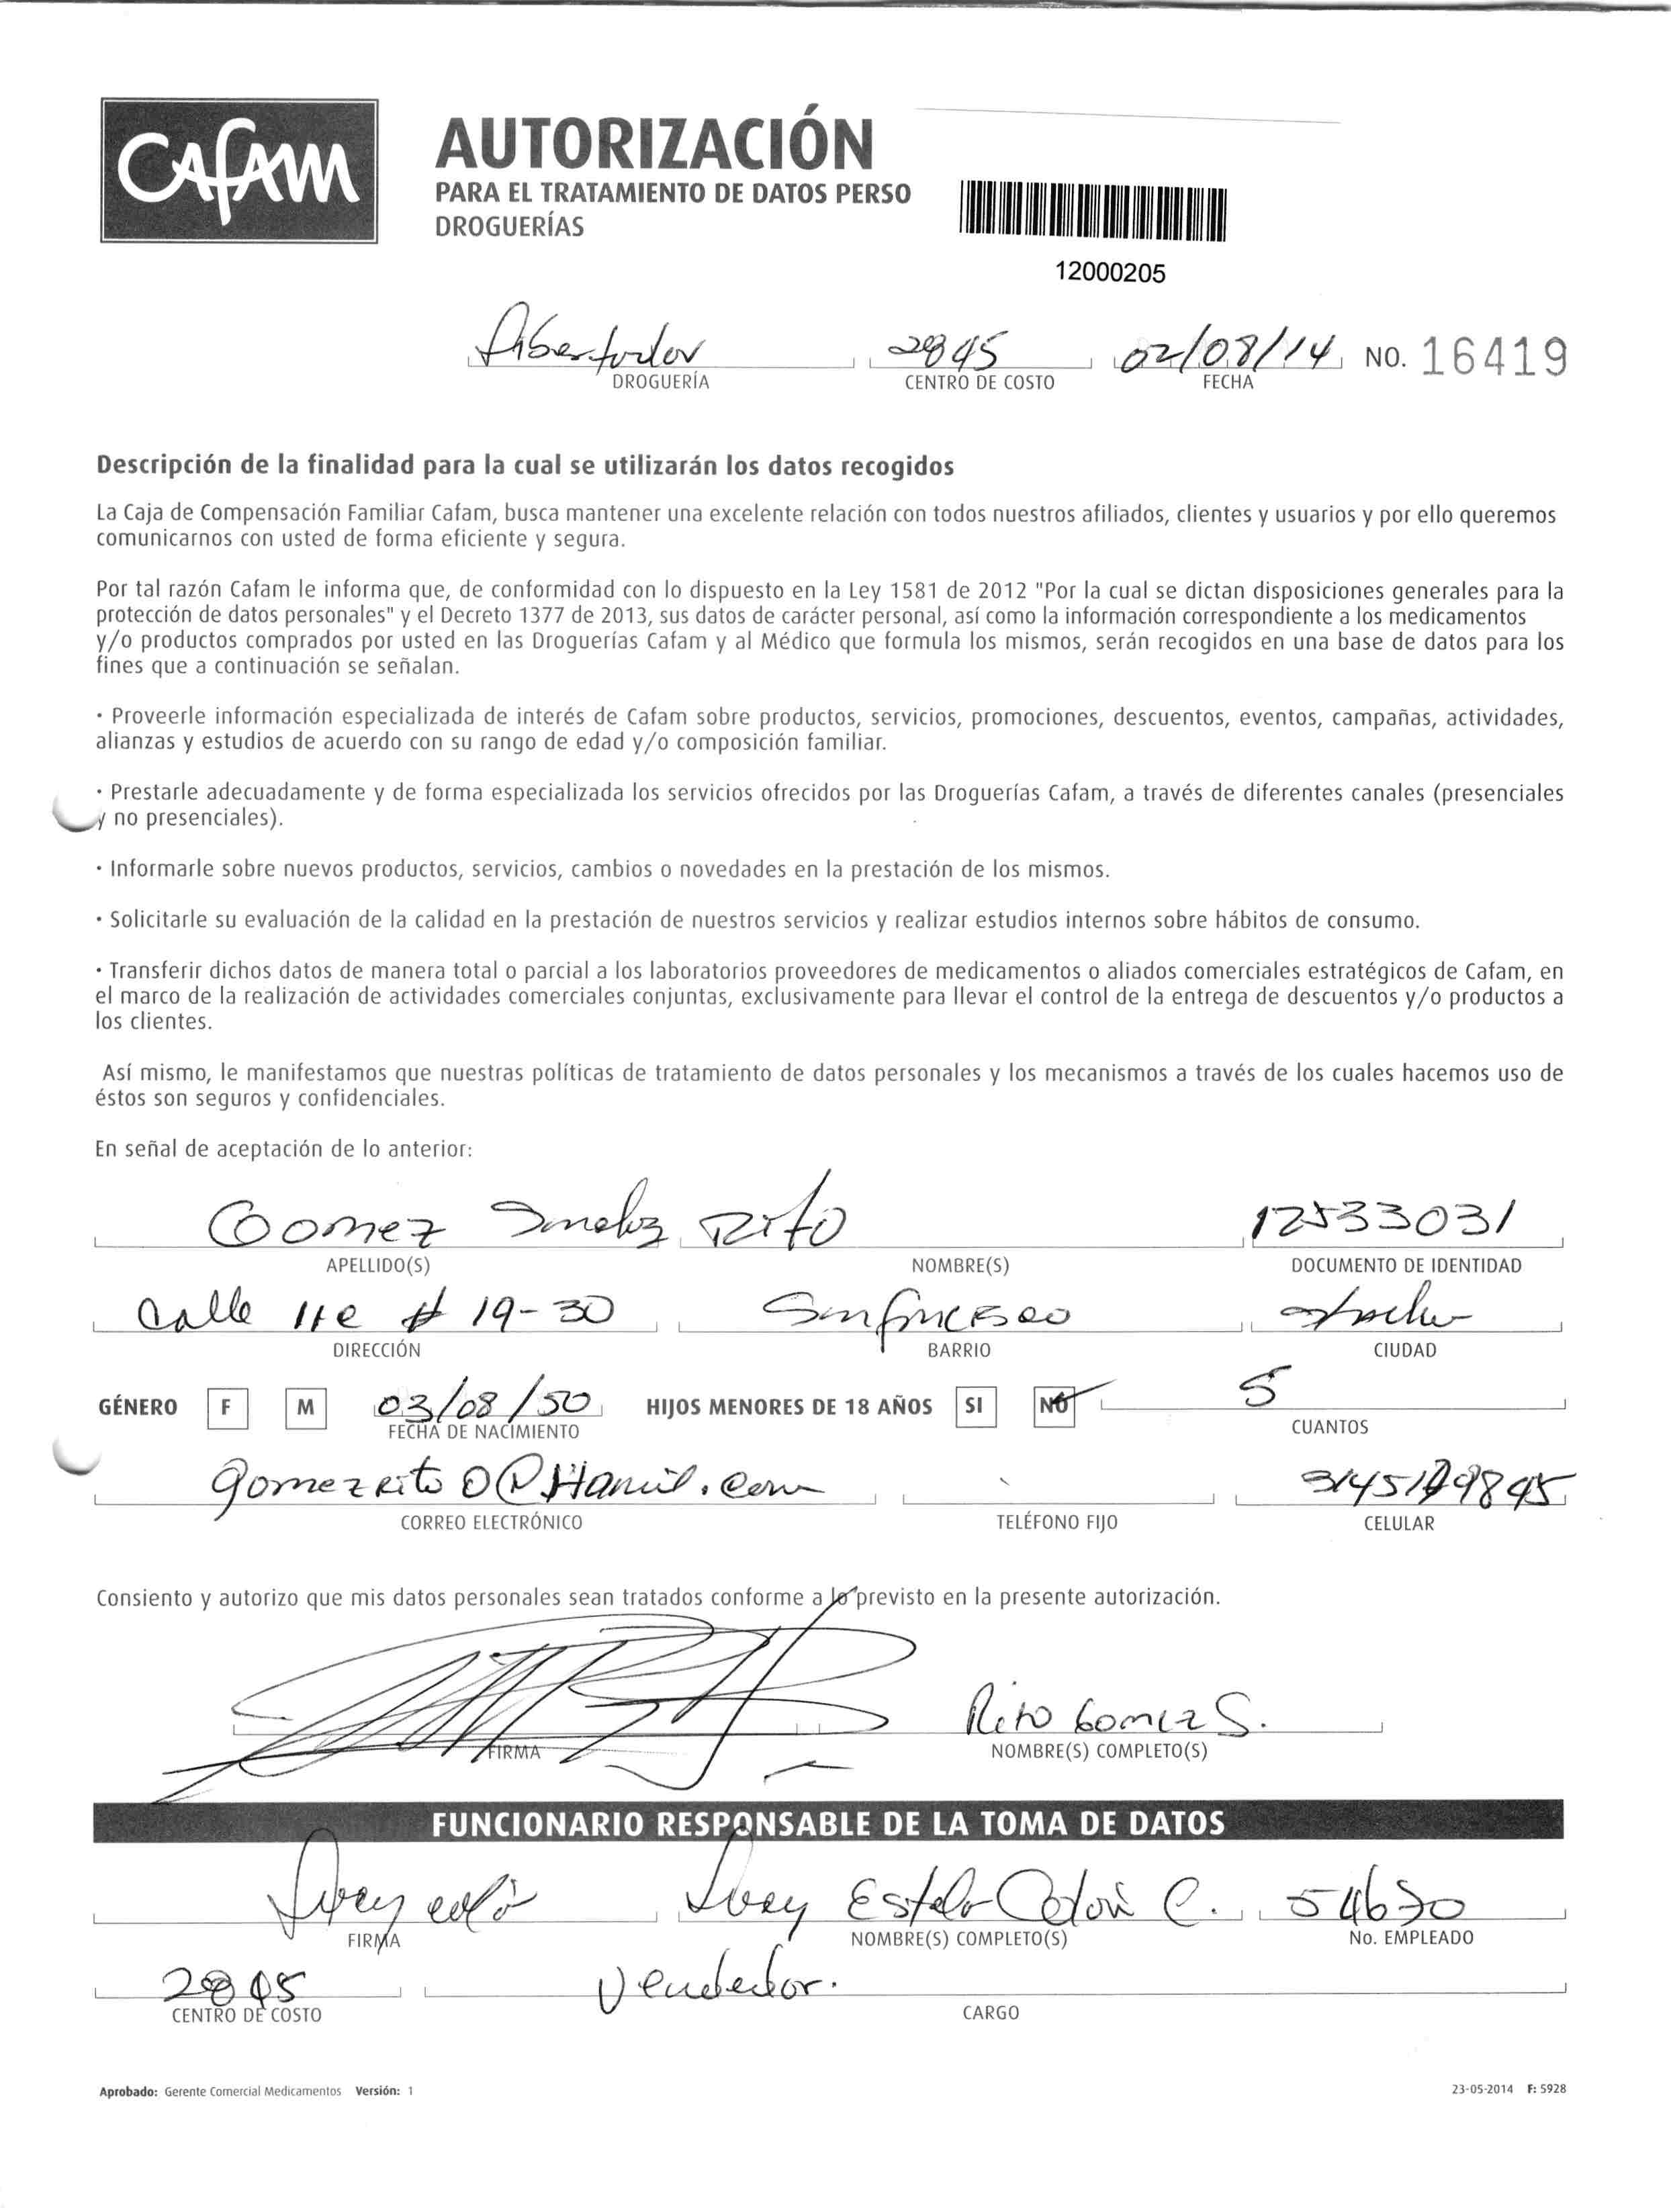 CAFAM
AUTORIZACIÓN
PARA EL TRATAMIENTO DE DATOS PERSO
DROGUERÍAS
12000205
Libertador 2845 02/08/14 NO. 16419
DROGUERÍA CENTRO DE COSTO FECHA
Descripción de la finalidad para la cual se utilizarán los datos recogidos
La Caja de Compensación Familiar Cafam, busca mantener una excelente relación con todos nuestros afiliados, clientes y usuarios y por ello queremos
comunicarnos con usted de forma eficiente y segura.
Por tal razón Cafam le informa que, de conformidad con lo dispuesto en la Ley 1581 de 2012 "Por la cual se dictan disposiciones generales para la
protección de datos personales" y el Decreto 1377 de 2013, sus datos de carácter personal, así como la información correspondiente a los medicamentos
y/o productos comprados por usted en las Droguerías Cafam y al Médico que formula los mismos, serán recogidos en una base de datos para los
fines que a continuación se señalan.
· Proveerle información especializada de interés de Cafam sobre productos, servicios, promociones, descuentos, eventos, campañas, actividades,
alianzas y estudios de acuerdo con su rango de edad y/o composición familiar.
· Prestarle adecuadamente y de forma especializada los servicios ofrecidos por las Droguerías Cafam, a través de diferentes canales (presenciales
y no presenciales).
· Informarle sobre nuevos productos, servicios, cambios o novedades en la prestación de los mismos.
· Solicitarle su evaluación de la calidad en la prestación de nuestros servicios y realizar estudios internos sobre hábitos de consumo.
· Transferir dichos datos de manera total o parcial a los laboratorios proveedores de medicamentos o aliados comerciales estratégicos de Cafam, en
el marco de la realización de actividades comerciales conjuntas, exclusivamente para llevar el control de la entrega de descuentos y/o productos a
los clientes.
Así mismo, le manifestamos que nuestras políticas de tratamiento de datos personales y los mecanismos a través de los cuales hacemos uso de
éstos son seguros y confidenciales.
En señal de aceptación de lo anterior:
Gomez Rito 12533031
APELLIDO(S) NOMBRE(S) DOCUMENTO DE IDENTIDAD
Calle 11e # 19-30
DIRECCIÓN BARRIO CIUDAD
GÉNERO F M 03/08/50 HIJOS MENORES DE 18 AÑOS SI NO 5
FECHA DE NACIMIENTO CUANTOS
CORREO ELECTRÓNICO TELÉFONO FIJO CELULAR
Consiento y autorizo que mis datos personales sean tratados conforme a lo previsto en la presente autorización.
Rito Gomez S.
FIRMA NOMBRE(S) COMPLETO(S)
FUNCIONARIO RESPONSABLE DE LA TOMA DE DATOS
Estela C. 54630
FIRMA NOMBRE(S) COMPLETO(S) No. EMPLEADO
2845 Vendedor.
CENTRO DE COSTO CARGO
Aprobado: Gerente Comercial Medicamentos Versión: 1 23-05-2014 F: 5928